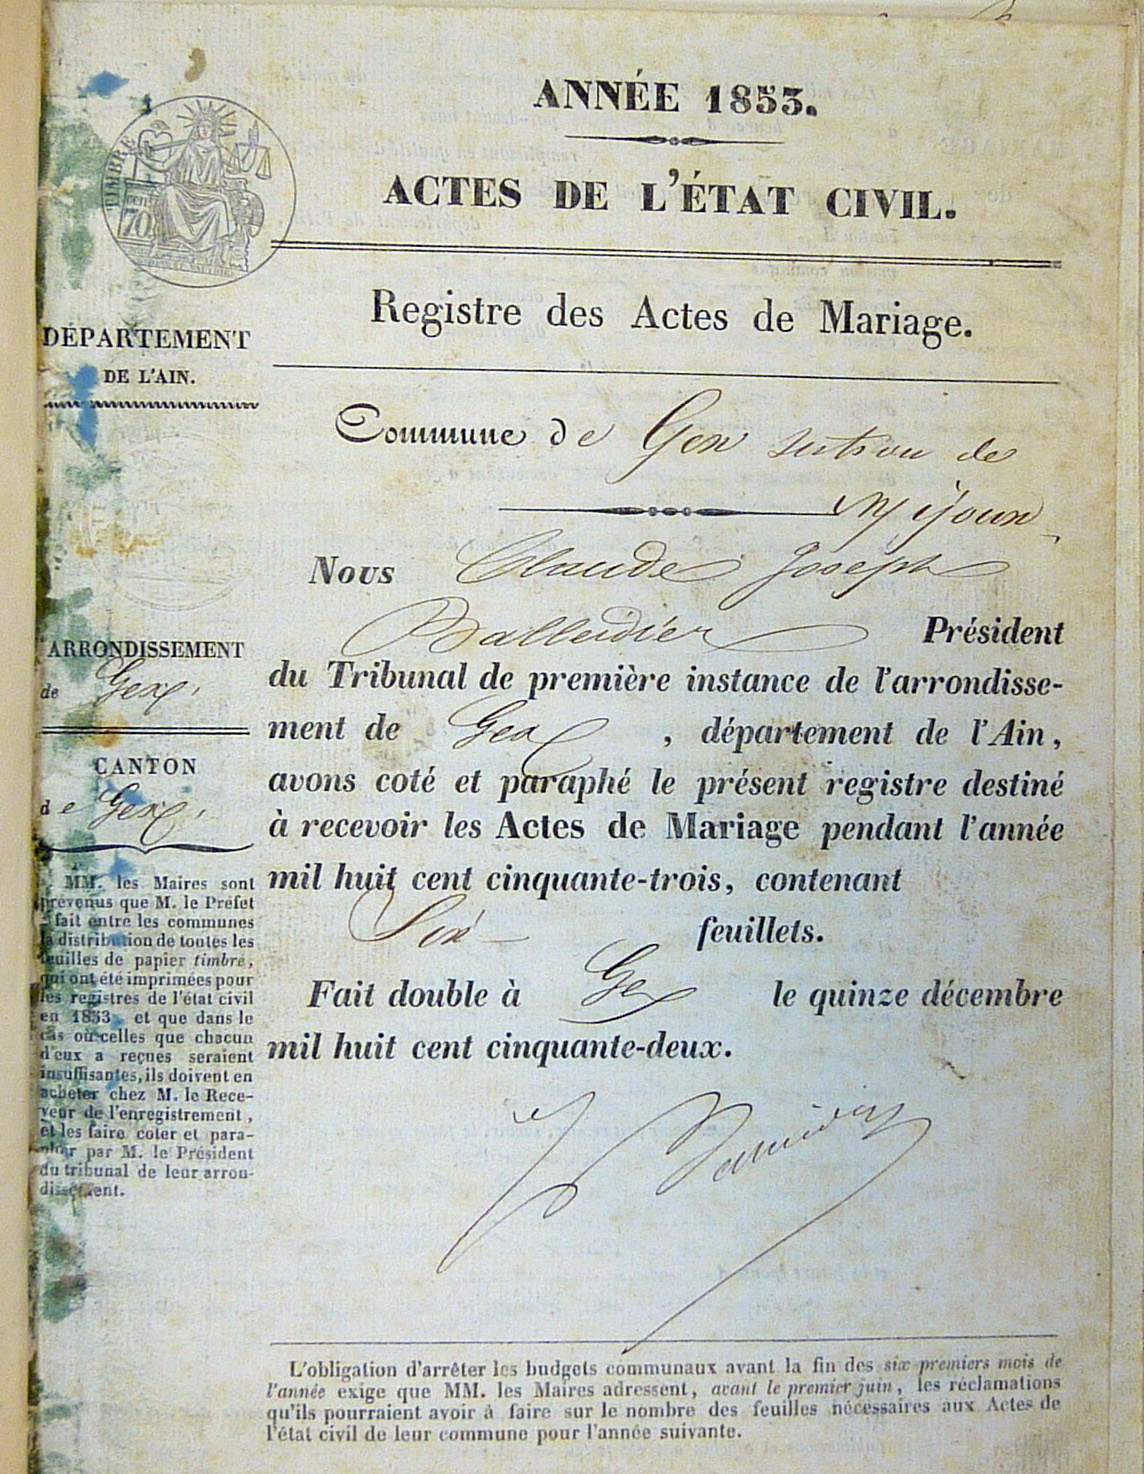 ANNÉE 1853.
ACTES DE L'ÉTAT CIVIL.
TIMBRE
cen
70
Registre des Actes de Mariage.
DÉPARTEMENT
DE L'AIN.
Commune de Gex section de
Mijoux
Nous Claude Joseph
Balleidier Président
du Tribunal de première instance de l'arrondisse-
ment de Gex , département de l'Ain,
avons coté et paraphé le présent registre destiné
à recevoir les Actes de Mariage pendant l'année
mil huit cent cinquante-trois, contenant
Six feuillets.
Fait double à Gex le quinze décembre
mil huit cent cinquante-deux.
ARRONDISSEMENT
de Gex.
CANTON
de Gex.
MM. les Maires sont
prévenus que M. le Préfet
fait entre les communes
la distribution de toutes les
feuilles de papier timbre,
qui ont été imprimées pour
les registres de l'état civil
en 1853, et que dans le
cas où celles que chacun
d'eux a reçues seraient
insuffisantes, ils doivent en
acheter chez M. le Rece-
veur de l'enregistrement,
et les faire coter et para-
pher par M. le Président
du tribunal de leur arron-
dissement.
L'obligation d'arrêter les budgets communaux avant la fin des six premiers mois de
l'année exige que MM. les Maires adressent, avant le premier juin, les réclamations
qu'ils pourraient avoir à faire sur le nombre des feuilles nécessaires aux Actes de
l'état civil de leur commune pour l'année suivante.